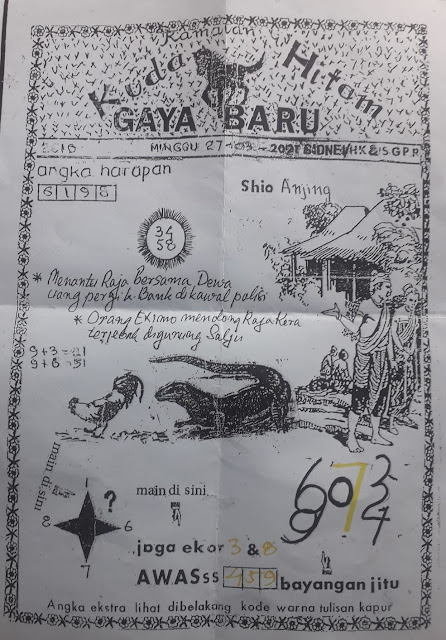 Ramalan
Kuda Hitam
GAYA BARU
MINGGU 27-03-2021 SIDNEY HK & SGPR
angka harapan
6198
Shio Anjing
34
58
* Menantu Raja Bersama Dewa
uang pergi k Bank di kawal polisi
* Orang Eximo mendong Raja Kera
terjebak digunung Salju
9+3=21
main di sini
?
8
6
7
main di sini
jaga ekor 3 & 8
AWASss 459 bayangan jitu
Angka ekstra lihat dibelakang kode warna tulisan kapur